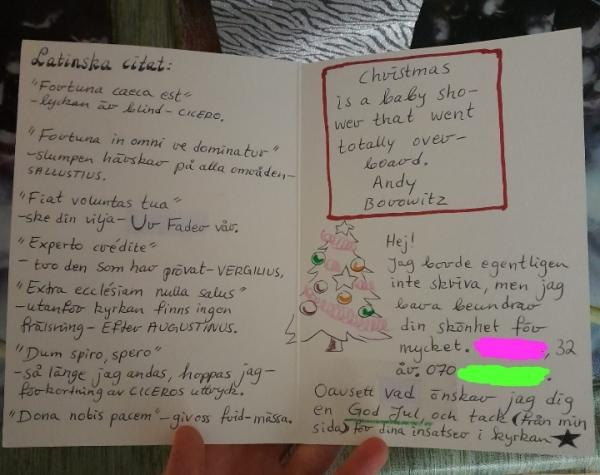 Latinska citat:
"Fortuna caeca est"
-lyckan är blind- CICERO.
"Fortuna in omni re dominatur"
-slumpen härskar på alla områden-
SALLUSTIUS.
"Fiat voluntas tua"
-ske din vilja- Ur Fader vår.
"Experto crédite"
- tro den som har prövat-VERGILIUS,
"Extra ecclésiam nulla salus"
-utanför kyrkan finns ingen
frälsning- Efter AUGUSTINUS.
"Dum spiro, spero"
-så länge jag andas, hoppas jag-
förkortning av CICEROS uttryck.
"Dona nobis pacem"-giv oss frid-mässa.
Christmas
is a baby sho-
wer that went
totally over-
board.
Andy
Borowitz
Hej!
Jag borde egentligen
inte skriva, men jag
bara beundrar
din skönhet för
mycket. , 32
år. 070 .
Oavsett vad önskar jag dig
en God Jul, och tack (från min
sida) för dina insatser i kyrkan